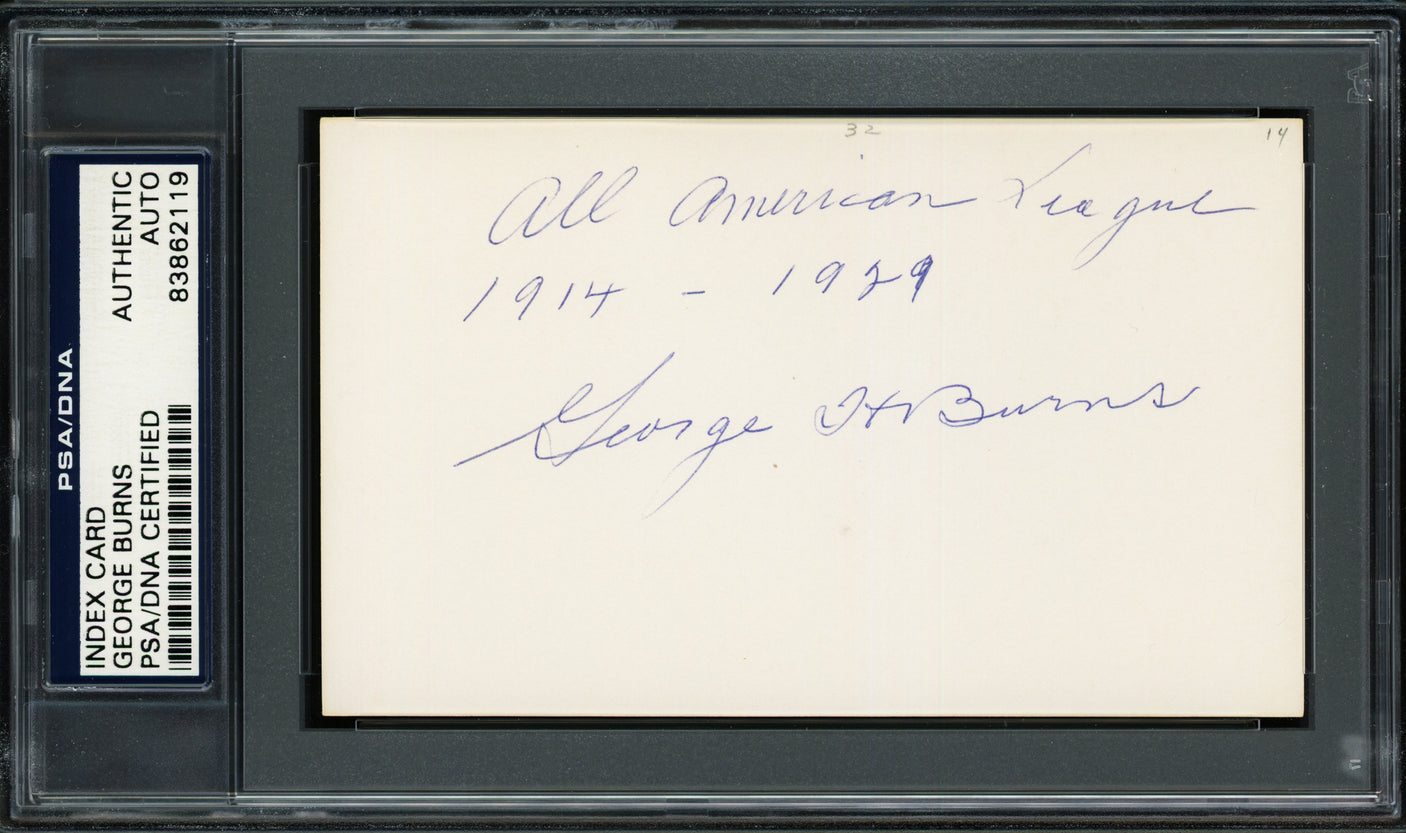 PSA/DNA
INDEX CARD
AUTHENTIC
GEORGE BURNS
AUTO
PSA/DNA CERTIFIED
83862119
32
14
All American League
1914 - 1929
George H Burns